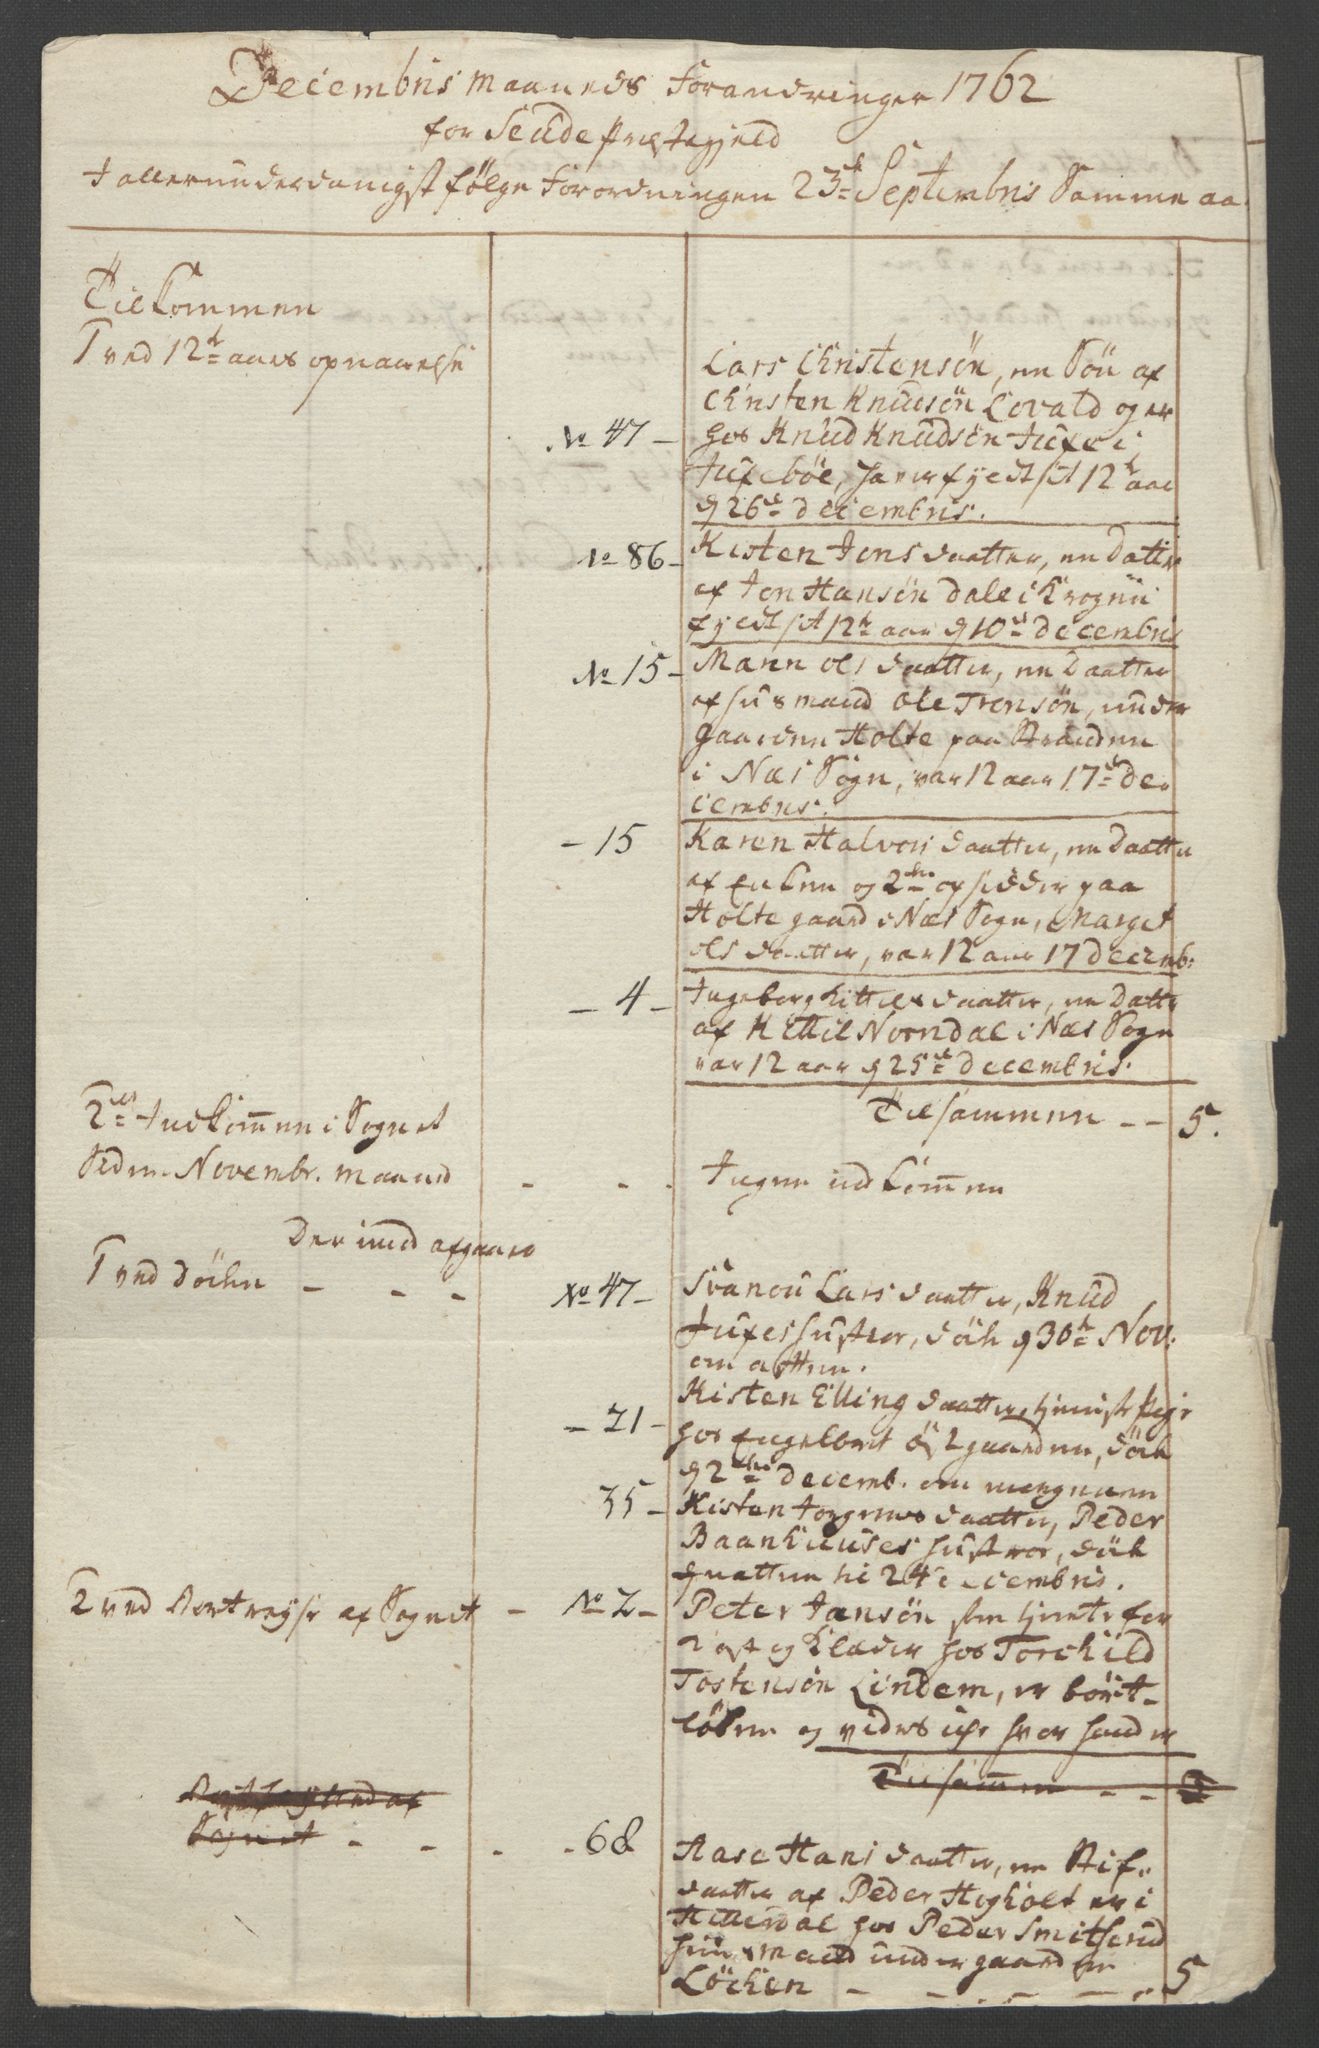 Decembris Maaneds Forandringer 1762
for Seude Præstegjeld
I allerunderdanigst følge Forordningen 23de Septembris Samme aa
Tilkommen
1 ved 12te aars opnaaelse
Lars Christensön, en Sön af
Christen Knudsön Lovald og er
No 47 - hos Knud Knudsön Tufte i
Tufteböe, haver fyldt sit 12te aar
d 26de Decembris.
No 86 - Kisten Jons daatter, en Datter
af Jon Hansön Dale i
fyldt sit 12te aar d 10de Decembris
No 15 - Maren Ols daatter, en Daatter
af Huusmand Ole Tronsön, under
Gaarden Holte paa Stranden
i Næs Sogn, var 12 aar 17de De-
cembris.
- 15 Karen Halvors daatter, en Daatter
af Enken og 2den opsidder paa
Holte gaard i Næs Sogn, Marget
Ols daatter, var 12 aar 17 Decemb:
- 4 - Ingeborg Kittels daatter, en Datter
af Kittil Norndal i Næs Sogn
var 12 aar d 25de Decembris.
Tilsammen - - 5.
2det Indkommen i Sognet
Siden Novembr. Maaned - - . Ingen indkommen
Derimod afgaaed
1 ved Döden - - -
No 47 - Svanou Lars daatter, Knud
Tuftes Hustroe, död d 30te Nov:
om aftten.
- 21 - Kisten Elling daatter, tjeniste Pige
hos Engelbret Östgaarden, död
d 2den Decemb. om morgenen
35 - Kisten Jorgens daatter, Peder
Baankaases Hustroe, död
d natten til 24 Decembris.
2 ved Bortreyse af Sognet - No 2 - Peter Jansön som tjente for
Kost og Klæder hos Torchild
Tostensön Lindem, er bört-
löben og vides icke hvor hand er
Tilsammen - -
af
Sognet - - - - 68 Aase Hans daatter, en Stif-
daatter af Peder Hogholt er i
Hitterdal hos Peder Smitserud
Huusmand under gaarden
Löchen - - . - - .. 5